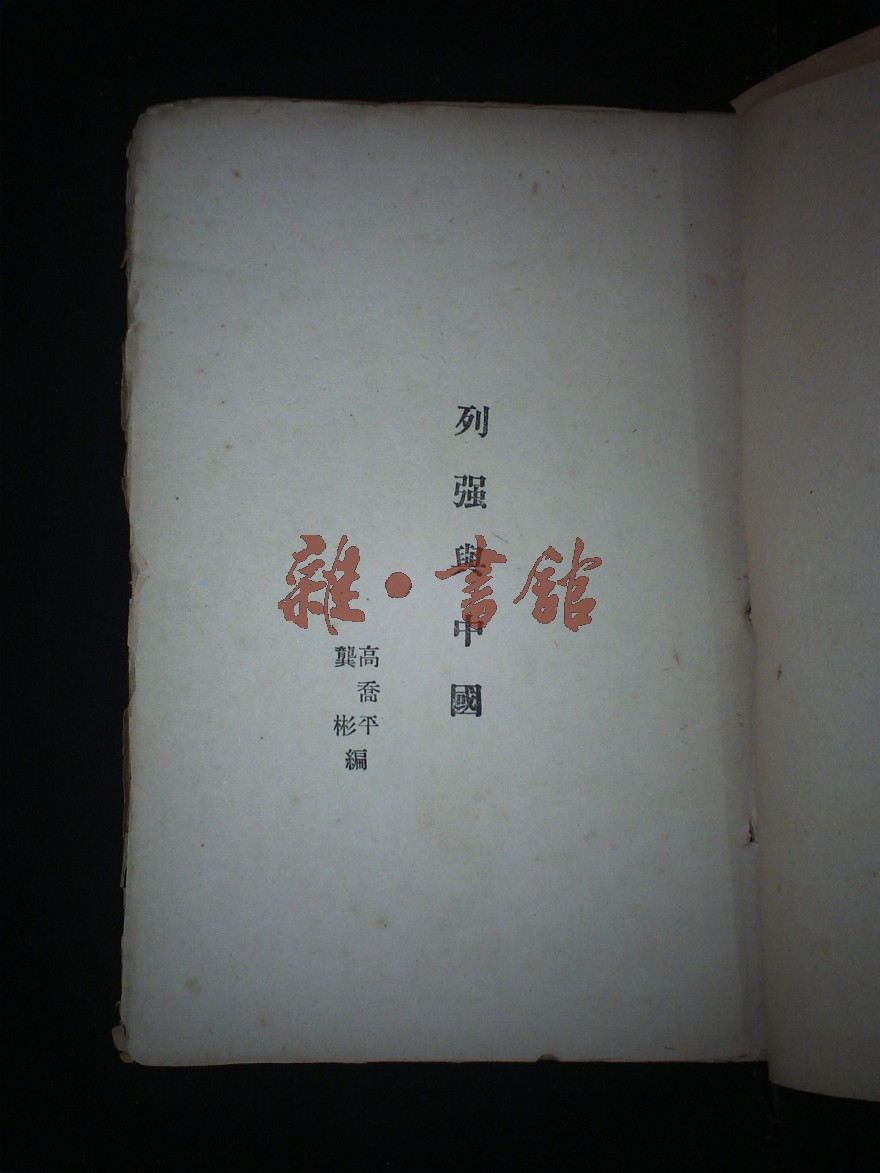 列强與中國
高喬平
龔彬
編
雜·書館